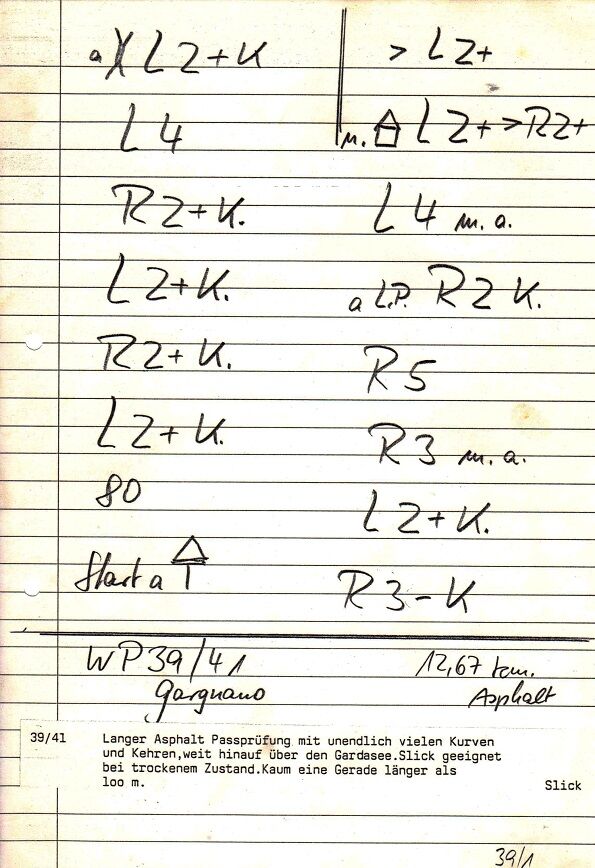 a )( L 2+ K
L 4
R 2+ K.
L 2+ K.
R 2+ K.
L 2+ K.
80
Start a
> L 2+
m. L 2+ > R 2+
L 4 m. a.
a L.P. R 2 K.
R 5
R 3 m. a.
L 2+ K.
R 3- K
WP 39/41
Gargnano
12,67 km.
Asphalt
39/41
Langer Asphalt Passprüfung mit unendlich vielen Kurven
und Kehren,weit hinauf über den Gardasee.Slick geeignet
bei trockenem Zustand.Kaum eine Gerade länger als
loo m.
Slick
39/1